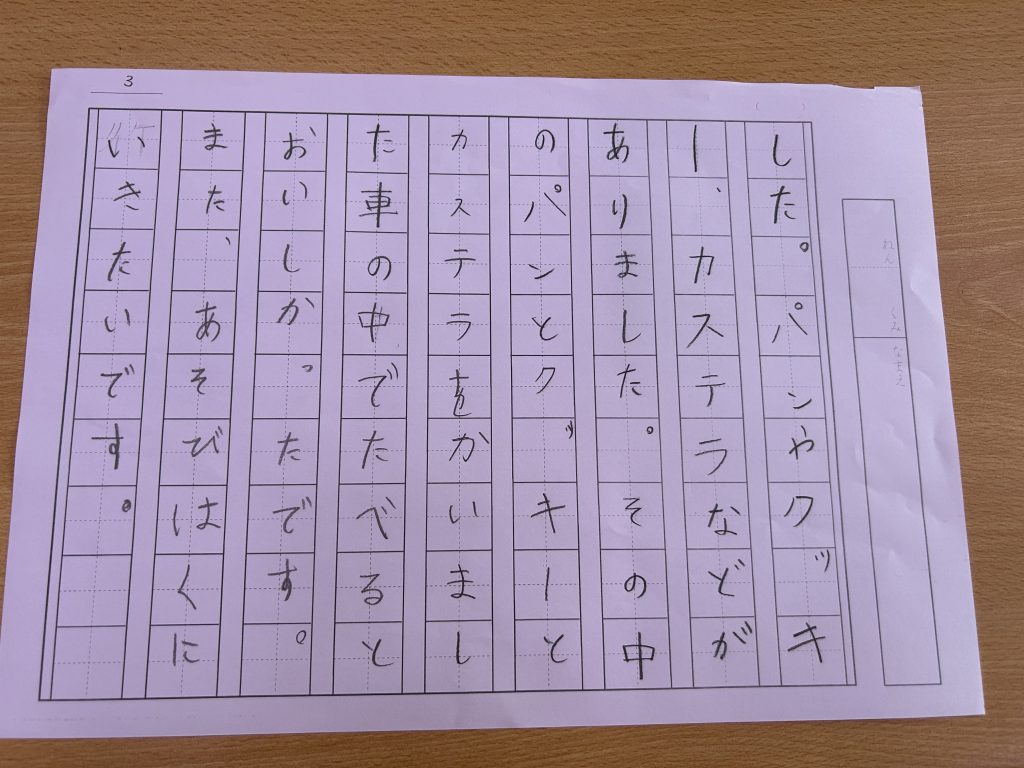 3
(　)
れん　くみ　なまえ
した。パンやクッキ
ー、カステラなどが
ありました。その中
のパンとクッキーと
カステラをかいまし
た車の中でたべると
おいしかったです。
また、あそびはくに
いきたいです。